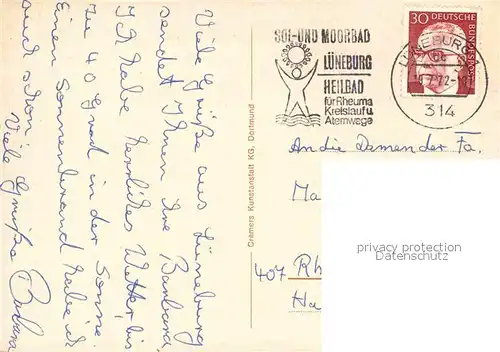 Viele Grüße aus Lüneburg
sendet Ihnen Ihre Barbara.
Ich habe herrliches Wetter bis
zu 40 Grad in der Sonne.
Einen Sonnenbrand habe ich
auch schon
Viele Grüße Barbara
Cramers Kunstanstalt KG, Dortmund
SOL-UND MOORBAD
LÜNEBURG
HEILBAD
für Rheuma
Kreislauf u.
Atemwege
30 DEUTSCHE
BUNDESPOST
LÜNEBURG 1
314
An die Damen der Fa.
Ma
407 Rh
Ha
privacy protection
oldthing.de
oldthing.de